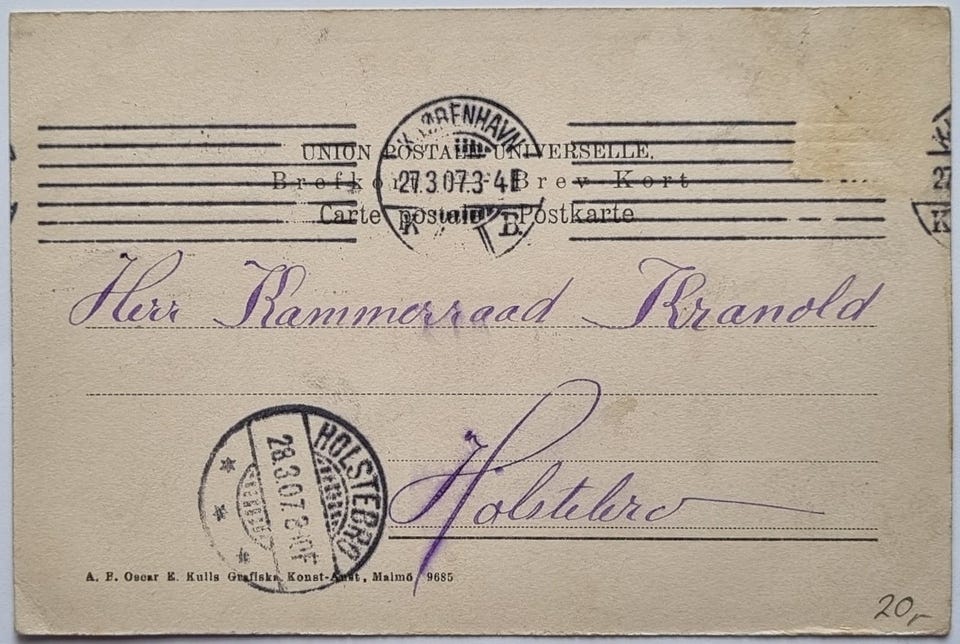 KJØBENHAVN
27.3.07.3-4E
K B.
K
27
K
UNION POSTALE UNIVERSELLE.
Brefkort - Brev Kort
Carte postale - Postkarte
Herr Kammerraad Kranold
Holstebro
HOLSTEBRO
28.3.07.8-9F
A. B. Oscar E. Kulls Grafiska Konst-Anst, Malmö 9685
20,-